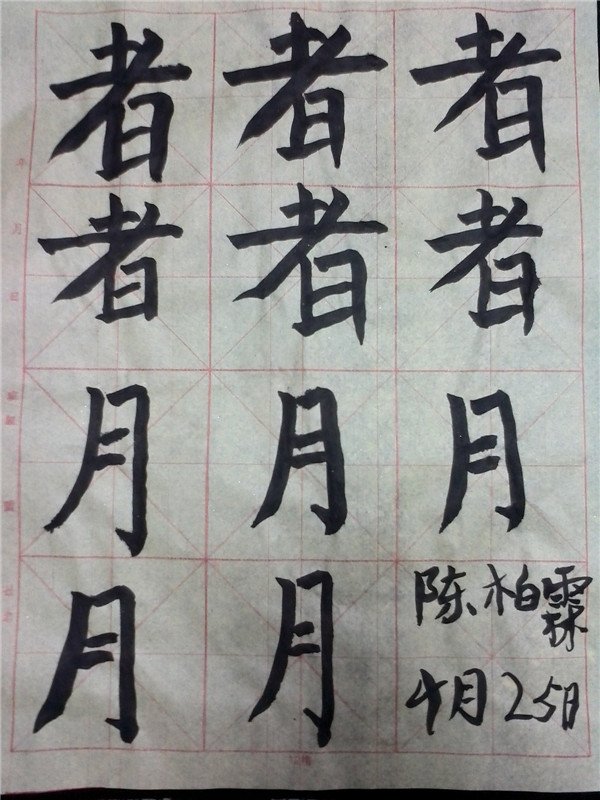 者者者
者者者
月月月
月月
陈柏霖
4月25日